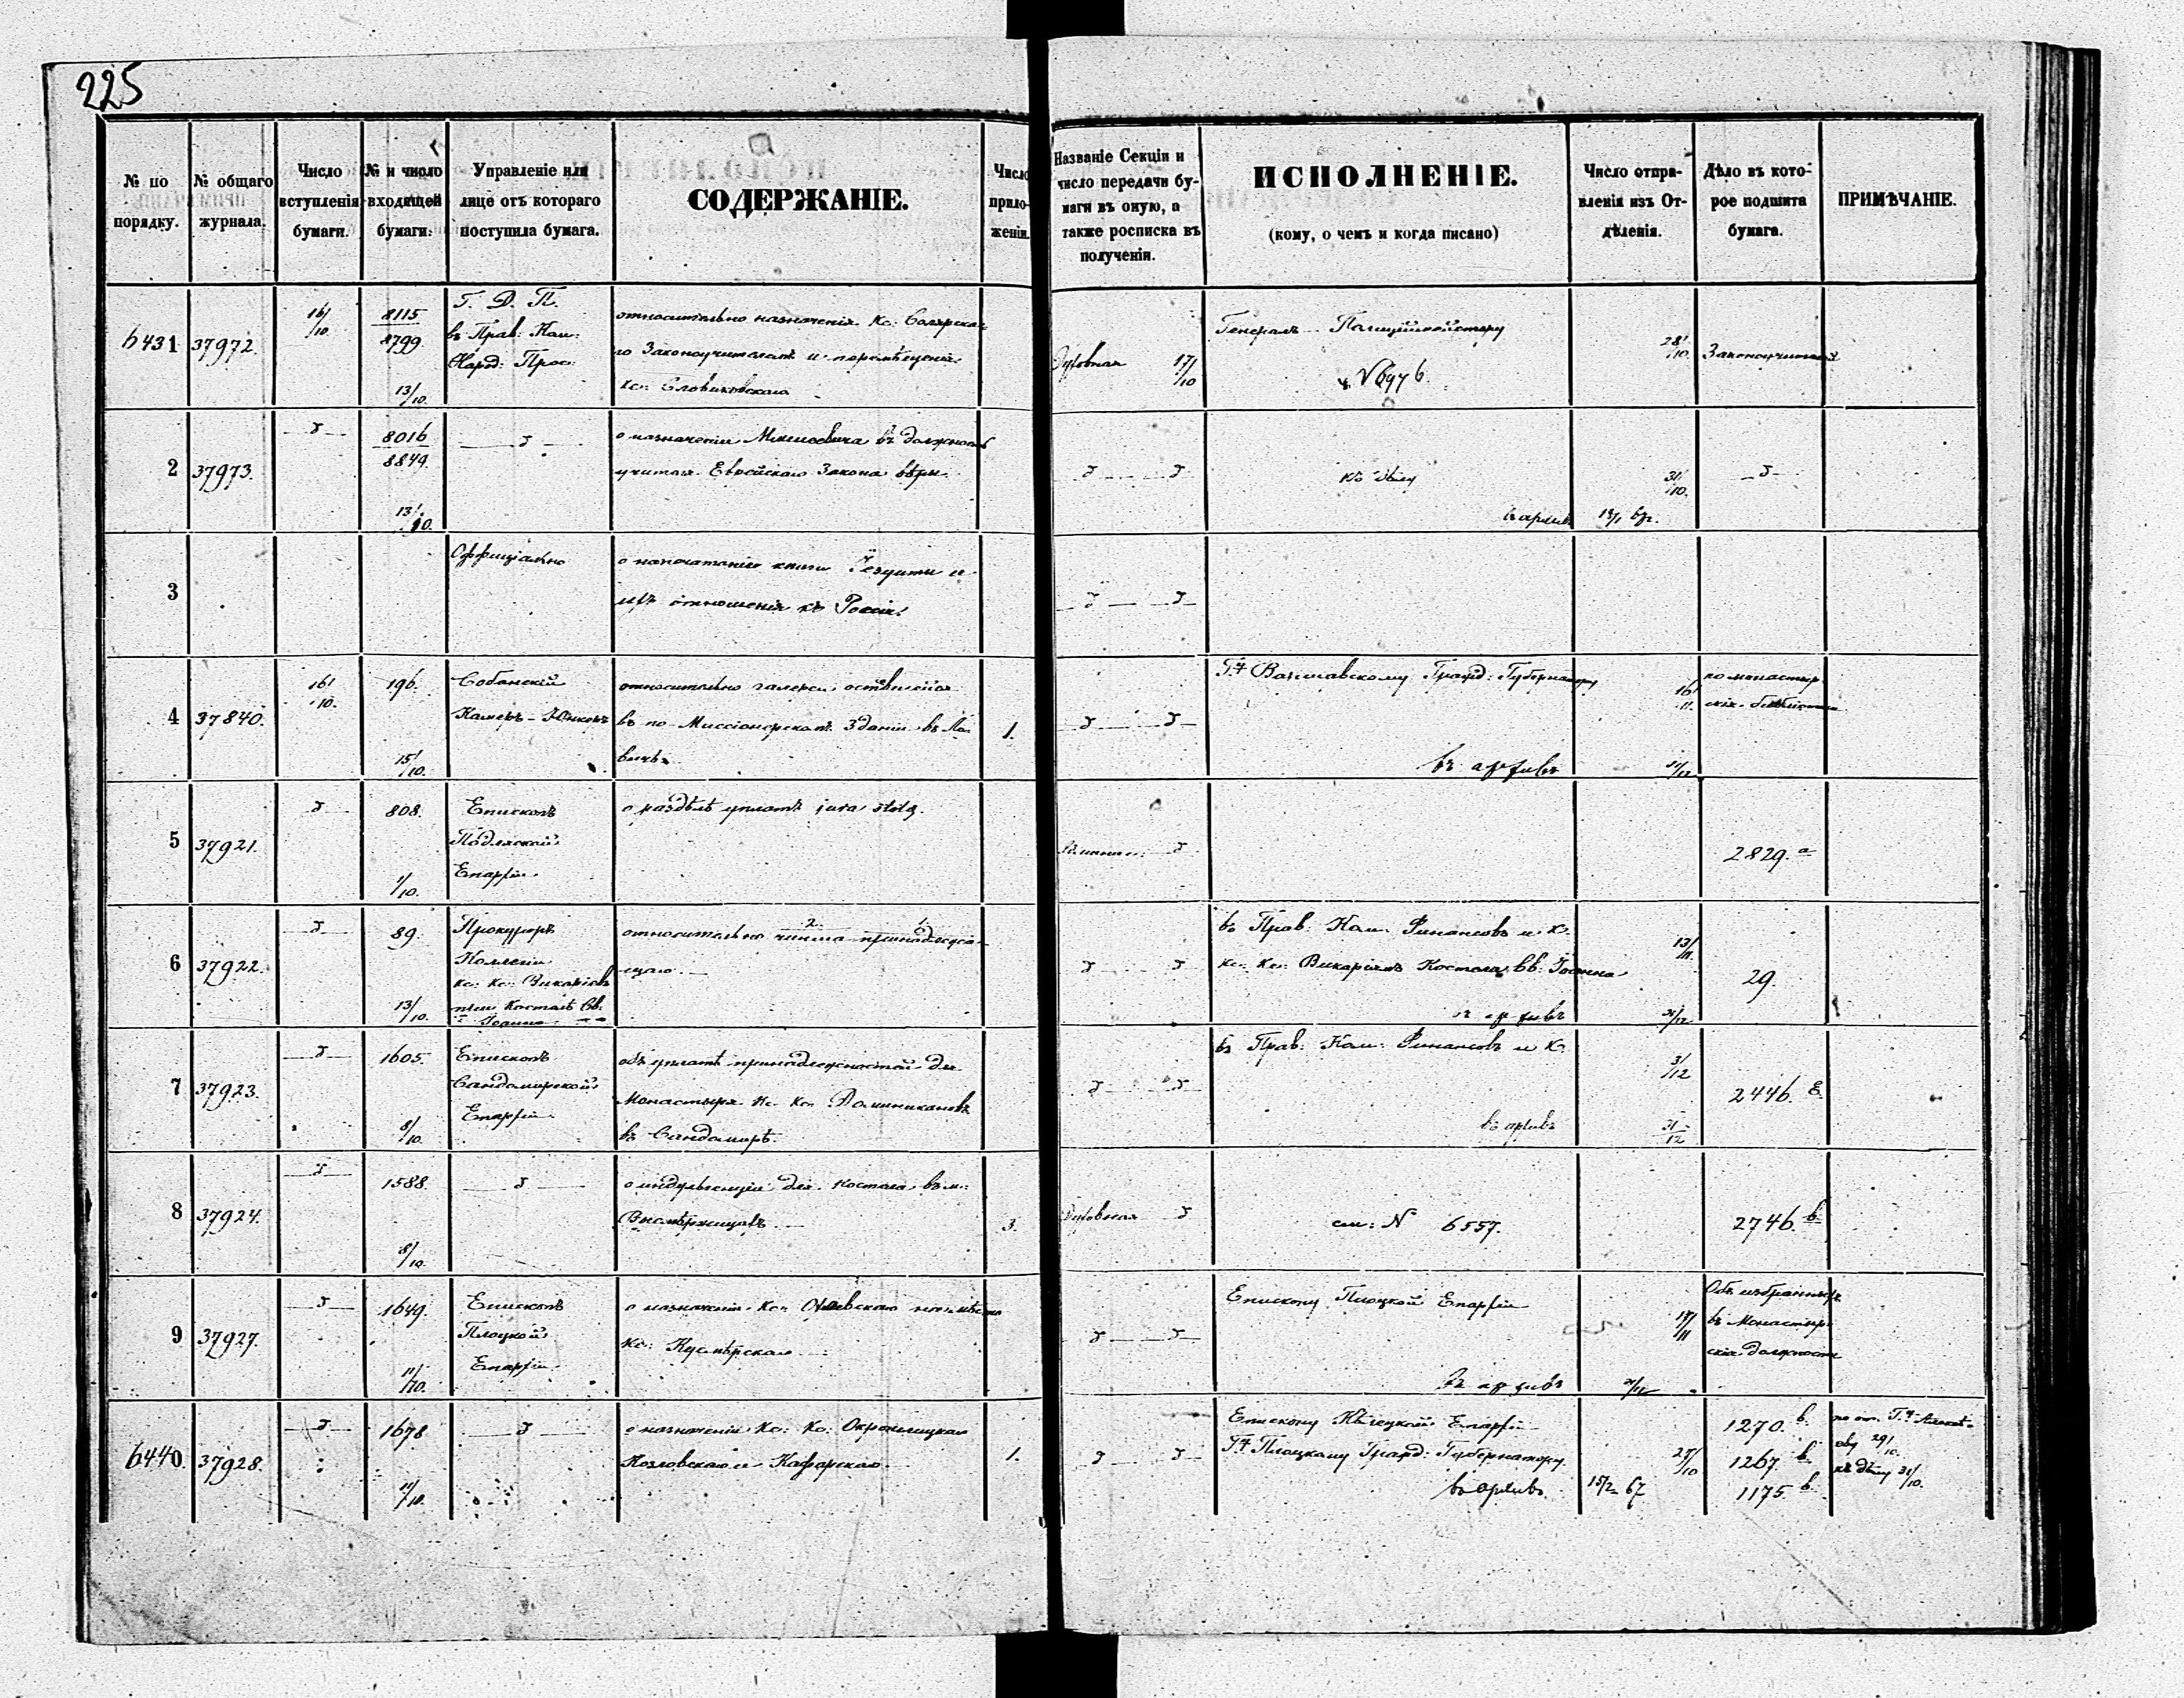 225
№ по порядку.
№ общаго журнала.
Число вступленія бумаги.
№ и число входящей бумаги.
Управленіе или лице отъ котораго поступила бумага.
СОДЕРЖАНІЕ.
Число приложеніи.
Названіе Секціи и число передачи бумаги въ оную, а также росписка въ полученіи.
ИСПОЛНЕНІЕ.
(кому, о чемъ и когда писано)
Число отправленія изъ Отдѣленія.
Дѣло въ которое подшита бумага.
ПРИМѢЧАНІЕ.
6431 37972. 16/10 8115
8799 13/10.
Г. Д. П.
въ Прав: Ком:
Народ: Прос:
относительно назначенія Кс:
го Законоучителемъ и перемѣщенія
кс: Словиковскаго
Духовная 17/10
Генералъ-Полицiймейстеру
№ 6976.
28/10.
Законоучителей
2 37973. 8016
8849. 13/10.
о назначеніи въ должность
учителя Еврейскаго Закона вѣры
къ дѣлу
31/10.
въ архивъ
3 Оффиціально
о напечатаніи книги Іезуиты и
ихъ отношенія къ Россіи.
4 37840. 16/10. 196. 15/10.
Собанскій
Камеръ-Юнкеръ
относительно галереи, оставшейся
въ по-Миссіонерскомъ Зданіи въ Ло
вичѣ.
1.
Г-ну Варшавскому Гражд: Губернатору
16/11.
по монастыр
скія библіотеки
въ архивъ
5 37921. 808. 1/10.
Епископъ
Подляской
Епархіи.
о раздѣлѣ уплатѣ jura stolæ.
2829. а
6 37922. 89. 13/10.
Прокуроръ
Коллегіи
кс: кс: Викаріевъ
при Костелѣ Св:
Іоанна
2. 1.
относительно чинша принадлежа
щаго.
въ Прав: Ком: Финансовъ и К.
кс: кс: Викаріямъ Костела Св: Іоанна
13/11.
29.
въ архивъ 31/12
7 37923. 1605. 8/10.
Епископъ
Сандомирской
Епархіи
объ уплатѣ принадлежностей для
Монастыря Кс: Кс: Доминикановъ
въ Сандомирѣ.
въ Прав: Ком: Финансовъ и К.
3/12
2446. Е.
въ архивъ 31/12
8 37924. 1588. 8/10.
о индульгенціи для Костела въ м:
3.
Духовная
см: № 6557.
2746. в.
9 37927. 1649. 11/10.
Епископъ
Плоцкой
Епархіи.
о назначеніи Кс: на мѣсто
Кс:
Епископу Плоцкой Епархіи
Объ избранныхъ
въ Монастыр
скія должности
въ архивъ
6440. 37928. 1678 11/10.
о назначеніи Кс: Кс:
Козловскаго и
1.
Епископу Епархіи
Г-ну Плоцкому Гражд: Губернатору.
27/10
въ архивъ 15/2 67
1270. в.
1267. в.
1175. в.
29/10.
къ дѣлу 31/10.